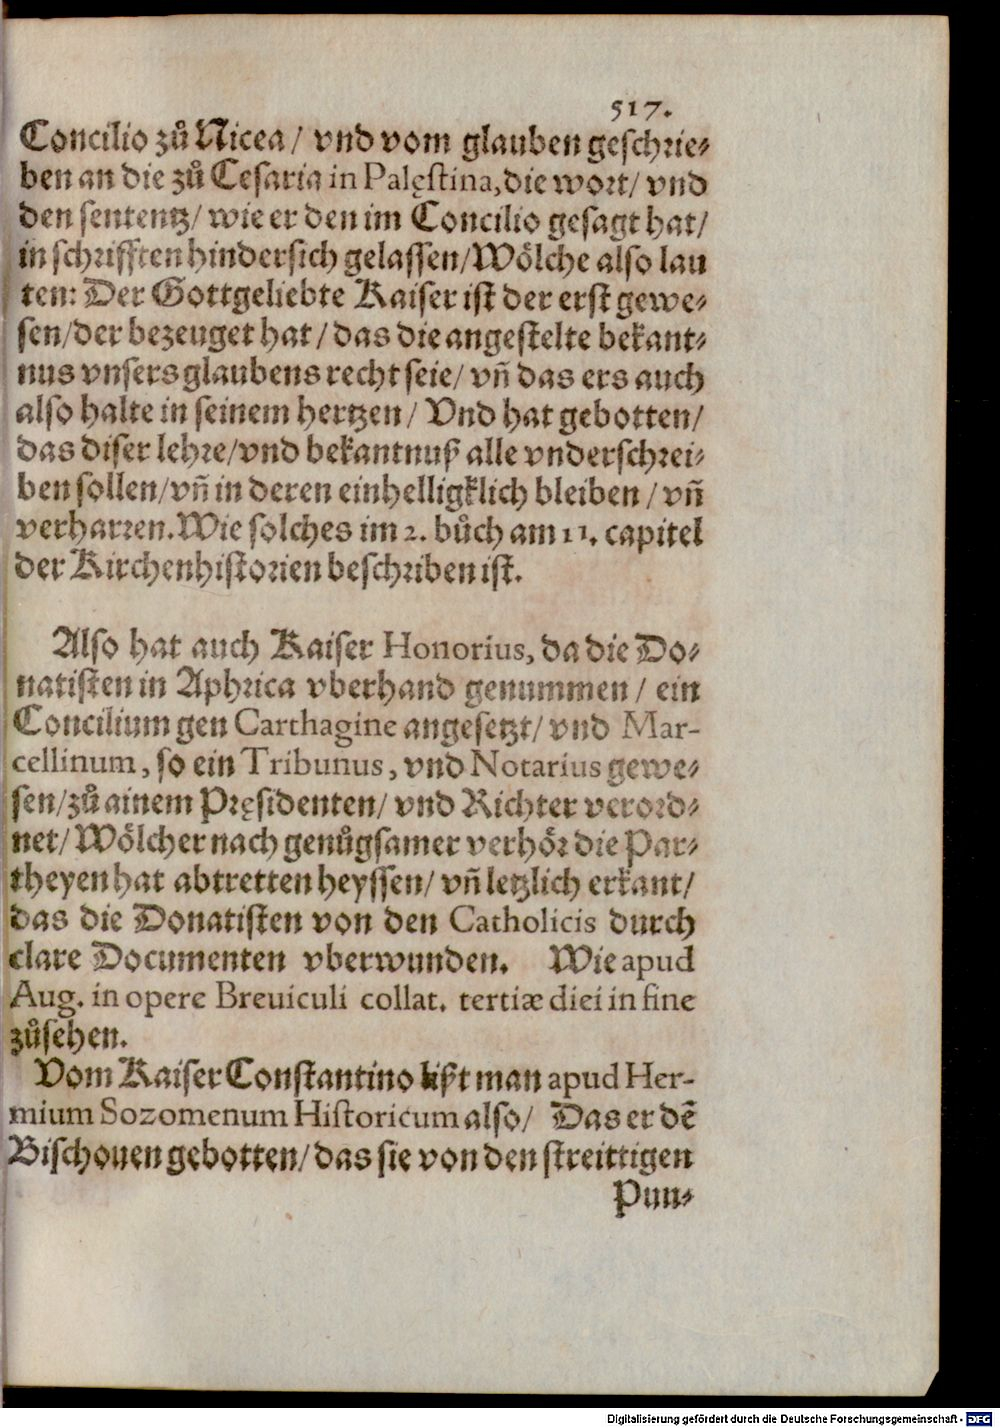 517.
Concilio zů Nicea / vnd vom glauben geschrie-
ben an die zů Cesaria in Palęstina, die wort/ vnd
den sententz/ wie er den im Concilio gesagt hat/
in schrifften hindersich gelassen/Wölche also lau
ten: Der Gottgeliebte Kaiser ist der erst gewe-
sen/der bezeuget hat / das die angestelte bekant-
nus vnsers glaubens recht seie/ vñ das ers auch
also halte in seinem hertzen / Vnd hat gebotten/
das diser lehre/vnd bekantnuß alle vnderschrei-
ben sollen/vñ in deren einhelligklich bleiben / vñ
verharren. Wie solches im 2. bůch am 11. capitel
der Kirchenhistorien beschriben ist.
Also hat auch Kaiser Honorius, da die Do-
natisten in Aphrica vberhand genummen / ein
Concilium gen Carthagine angesetzt/ vnd Mar-
cellinum, so ein Tribunus, vnd Notarius gewe-
sen/zů ainem Pręsidenten/ vnd Richter verord-
net/ Wölcher nach genůgsamer verhör die Par-
theyen hat abtretten heyssen/ vñ letzlich erkant/
das die Donatisten von den Catholicis durch
clare Documenten vberwunden. Wie apud
Aug. in opere Breuiculi collat. tertiæ diei in fine
zůsehen.
Vom Kaiser Constantino lißt man apud Her-
mium Sozomenum Historicum also/ Das er dē
Bischouen gebotten/das sie von den streittigen
Pun-
Digitalisierung gefördert durch die Deutsche Forschungsgemeinschaft - DFG